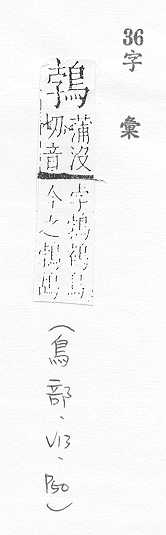 36字彙
鵓
蒲沒
切音
孛鵓鳥
今之鵓
(鳥部、V13、P50)